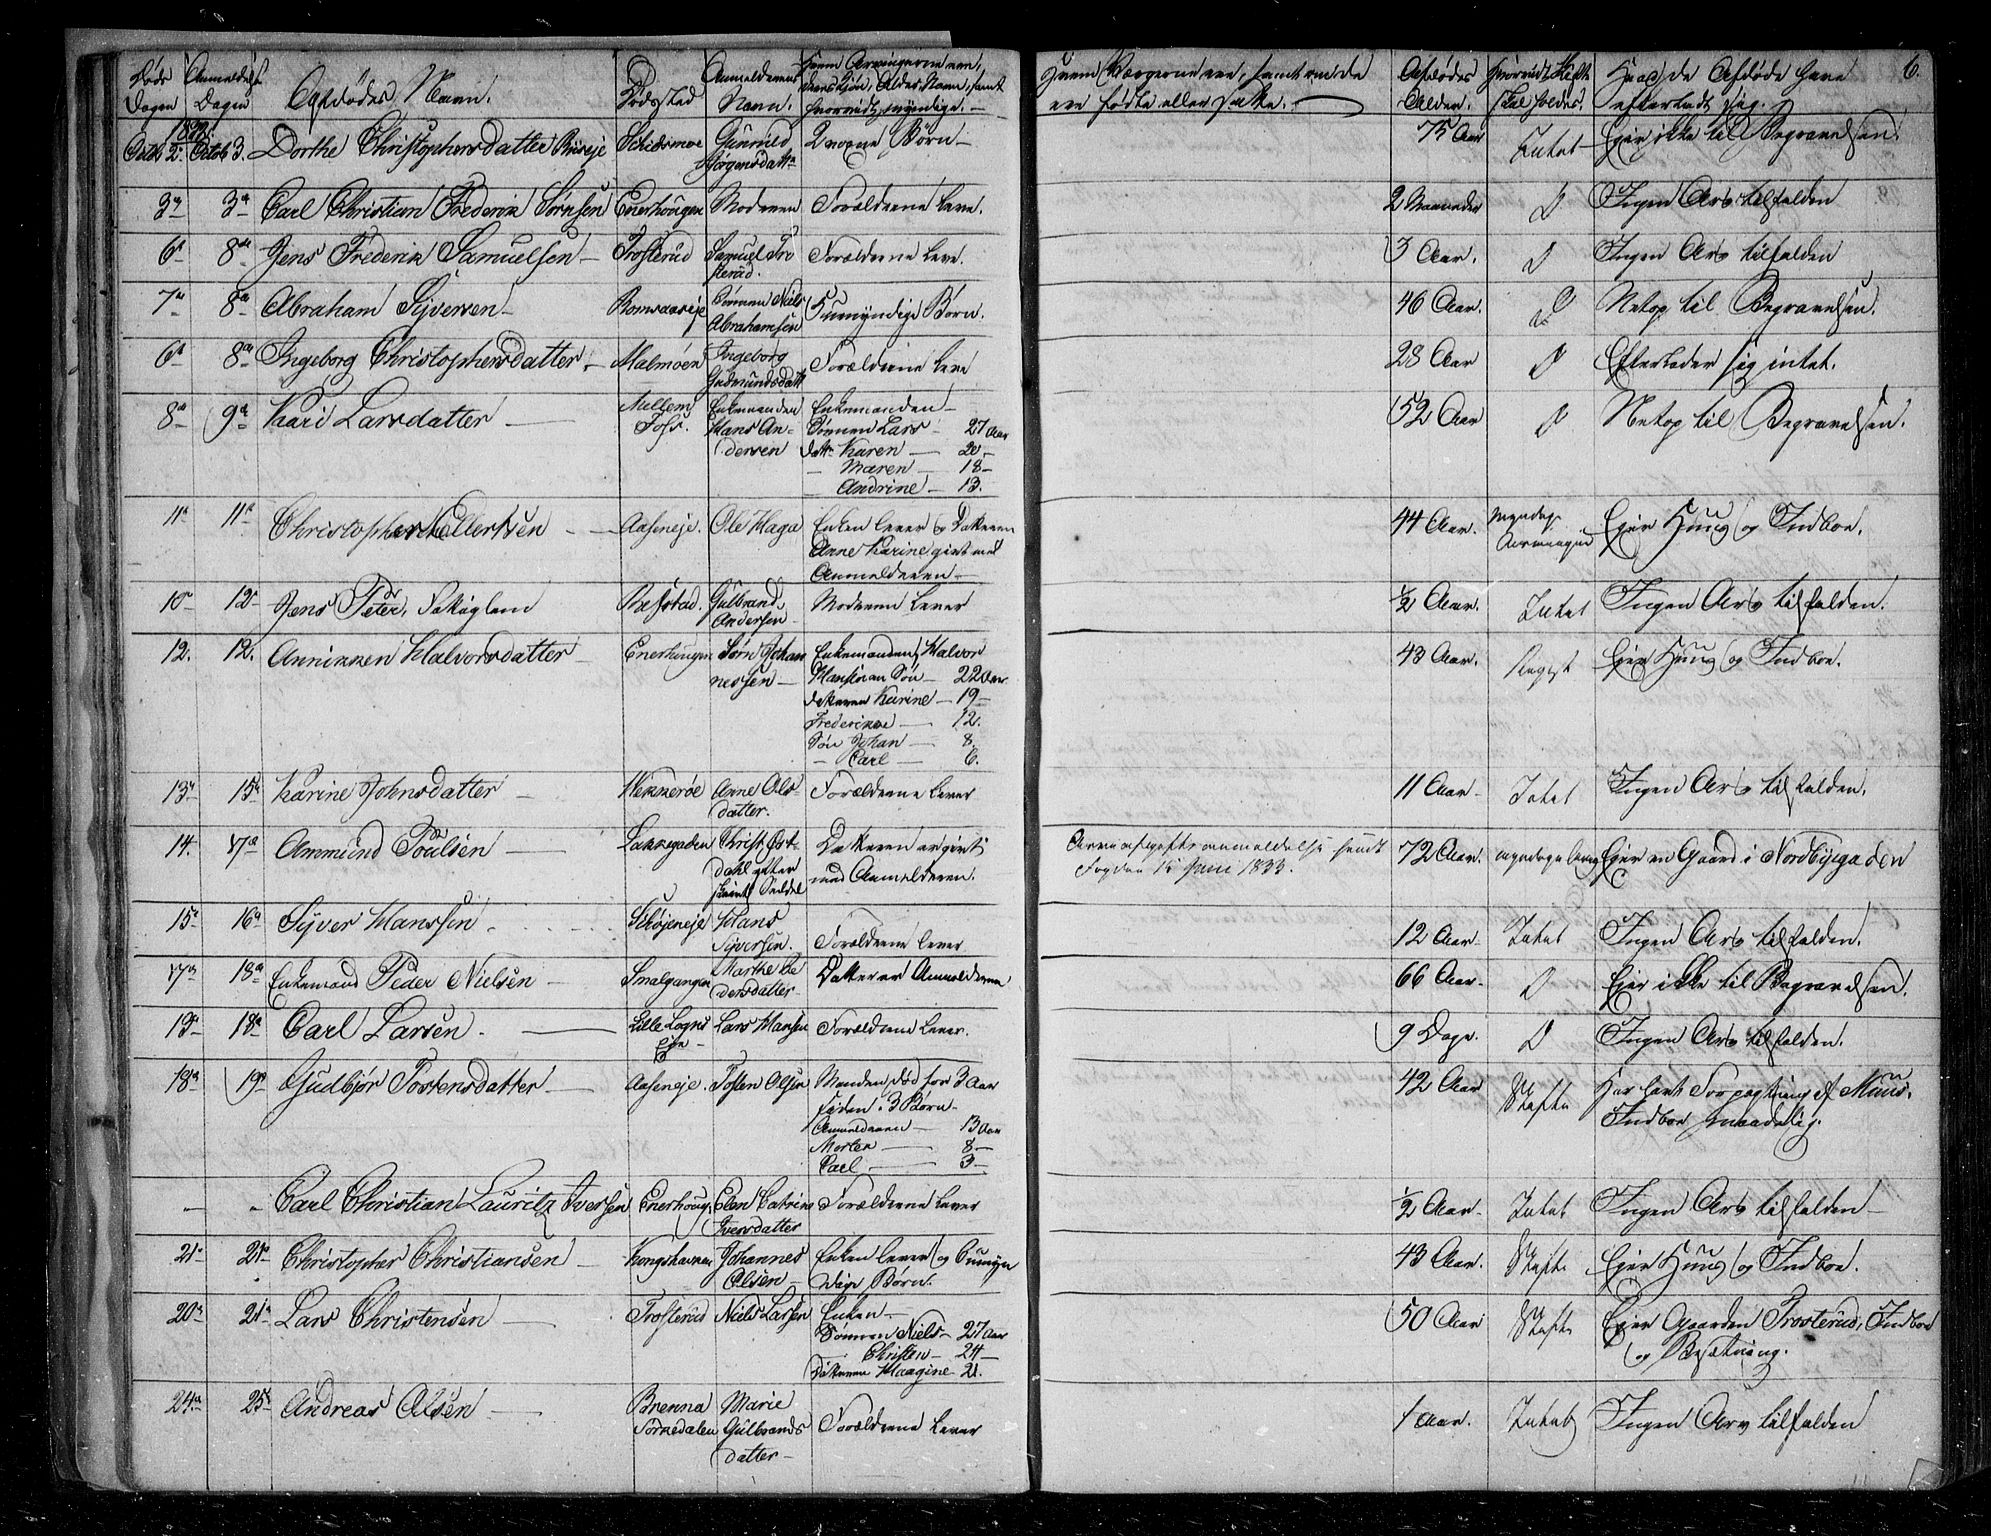 Døds Dagen | Anmeldelses Dagen | Afdødes Navn. | Dødssted | Anmelderens Navn. | Hvem Arvingerne ere, deres Kjøn, Alder, Navn, samt hvorvidt myndige. | Hvem Værgerne ere, samt om de ere fødte eller satte. | Afdødes Alder. | Hvorvidt Skifte skal holdes. | Hvad de Afdøde have efterladt sig. | 6.
Octb 2. | Octob 3. | Dorthe Christophersdatter | | Gunnild Jørgensdattr | Børn | 75 Aar | Intet | Ejer ikke til Begravelsen.
3 | 3 | Carl Christian Frederik Sørnsen | Enerhougen | Moderen | Forældrene leve. | 2 Maaneder | D | Ingen Arv tilfalden
6 | 8 | Jens Frederik Samuelsen | Trosterud | Samuel Trosterud. | Forældrene leve. | 3 Aar. | D | Ingen Arv tilfalden
7 | 8 | Abraham Syversen | | Sønnen Niels Abrahamsen | Umyndige Børn. | 46 Aar. | D | Netop til Begravelsen.
6 | 8 | Ingeborg Christophersdatter | Malmøen | Ingeborg Gudmundsdattr | Forældrene leve | 28 Aar | D | Efterlader sig intet.
8 | 9 | Kari Larsdatter | Mellem Foss. | Enkemanden Hans Andersen | Enkemanden
Sønnen Lars 27 Aar
Datt. Karen 20
Maren 18
Andrine 13. | 52 Aar | D | Netop til Begravelsen.
11 | 11 | Christopher Ellertsen | Aaseneje. | Ole Haga | Enken lever og Datteren Anne Karine givt med Anmelderen | 44 Aar. | Myndige Arvinger | Ejer Huus og Indboe.
10 | 12 | Jens Peter | | Gulbrand Andersen | Moderen lever | ½ Aar. | Intet | Ingen Arv tilfalden.
12. | 12. | Anniken Halvorsdatter | Enerhougen | Sørn Johannessen | Enkemanden, Halvor
Hans en Søn 22 Aar
Datteren Karine 19
Frederikke 12.
Søn Johan 8
Carl 6. | 43 Aar. | Regist | Ejer Huus og Indboe.
13 | 15 | Karine Johnsdatter | Hekkerøe | Anne Olsdatter. | Forældrene lever | 11 Aar | Intet | Ingen Arv tilfalden.
14. | 17 | Ammund Poulsen | Lakkegaden | Christ. Østdahl efter skrivtl. Seddel | Datteren er givt med Anmelderen. | Arveafgiftsanmeldelse sendt Fogden 15 Juni 1833. | 72 Aar. | myndige | Ejer en Gaard i Nordbyegaden
15 | 16 | Syver Hanssen | Skøjeneje | Hans Syversen. | Forældrene lever | 12 Aar | Intet | Ingen Arv tilfalden.
17 | 18 | Enkemand Peder Nielsen | Smalgangen | Marthe Pedersdatter | Datter er Anmelderen | 66 Aar | D | Ejer ikke til Begravelsen.
19 | 18 | Carl Larsen | Lille | Lars Hansen | Forældrene lever. | 9 Dage. | D | Ingen Arv tilfalden.
18 | 19 | Gudbjør Tostensdatter | Aaseneje. | Tosten Olsen | Manden død for 3 Aar siden. 3 Børn
Anmelderen 13 Aar
Morten 8
Carl 3 | 42 Aar | Skifte | Har havt Forpagtning af Huus. Indboe maadelig.
Carl Christian Lauritz Iversen | Enerhoug. | Elen Catrine Iversdatter | Forældrene lever | ½ Aar | Intet | Ingen Arv tilfalden
21 | 21 | Christopher Christiansen | Kongshavnen | Johannes Olsen | Enken lever og Umyndige Børn. | 43 Aar. | Skifte | Ejer Huus og Indboe.
20 | 21 | Lars Christensen | Trosterud | Niels Larsen | Enken
Sønnen Niels 27 Aar
Christen 24
Datteren Haagine 21. | 50 Aar | Skifte | Ejer Gaarden Trosterud, Indboe og Besætning.
24 | 25 | Andreas Olsen | Brenna Sørkedalen | Marie Gulbrandsdatter | Forældrene lever | 1 Aar. | Intet | Ingen Arv tilfalden